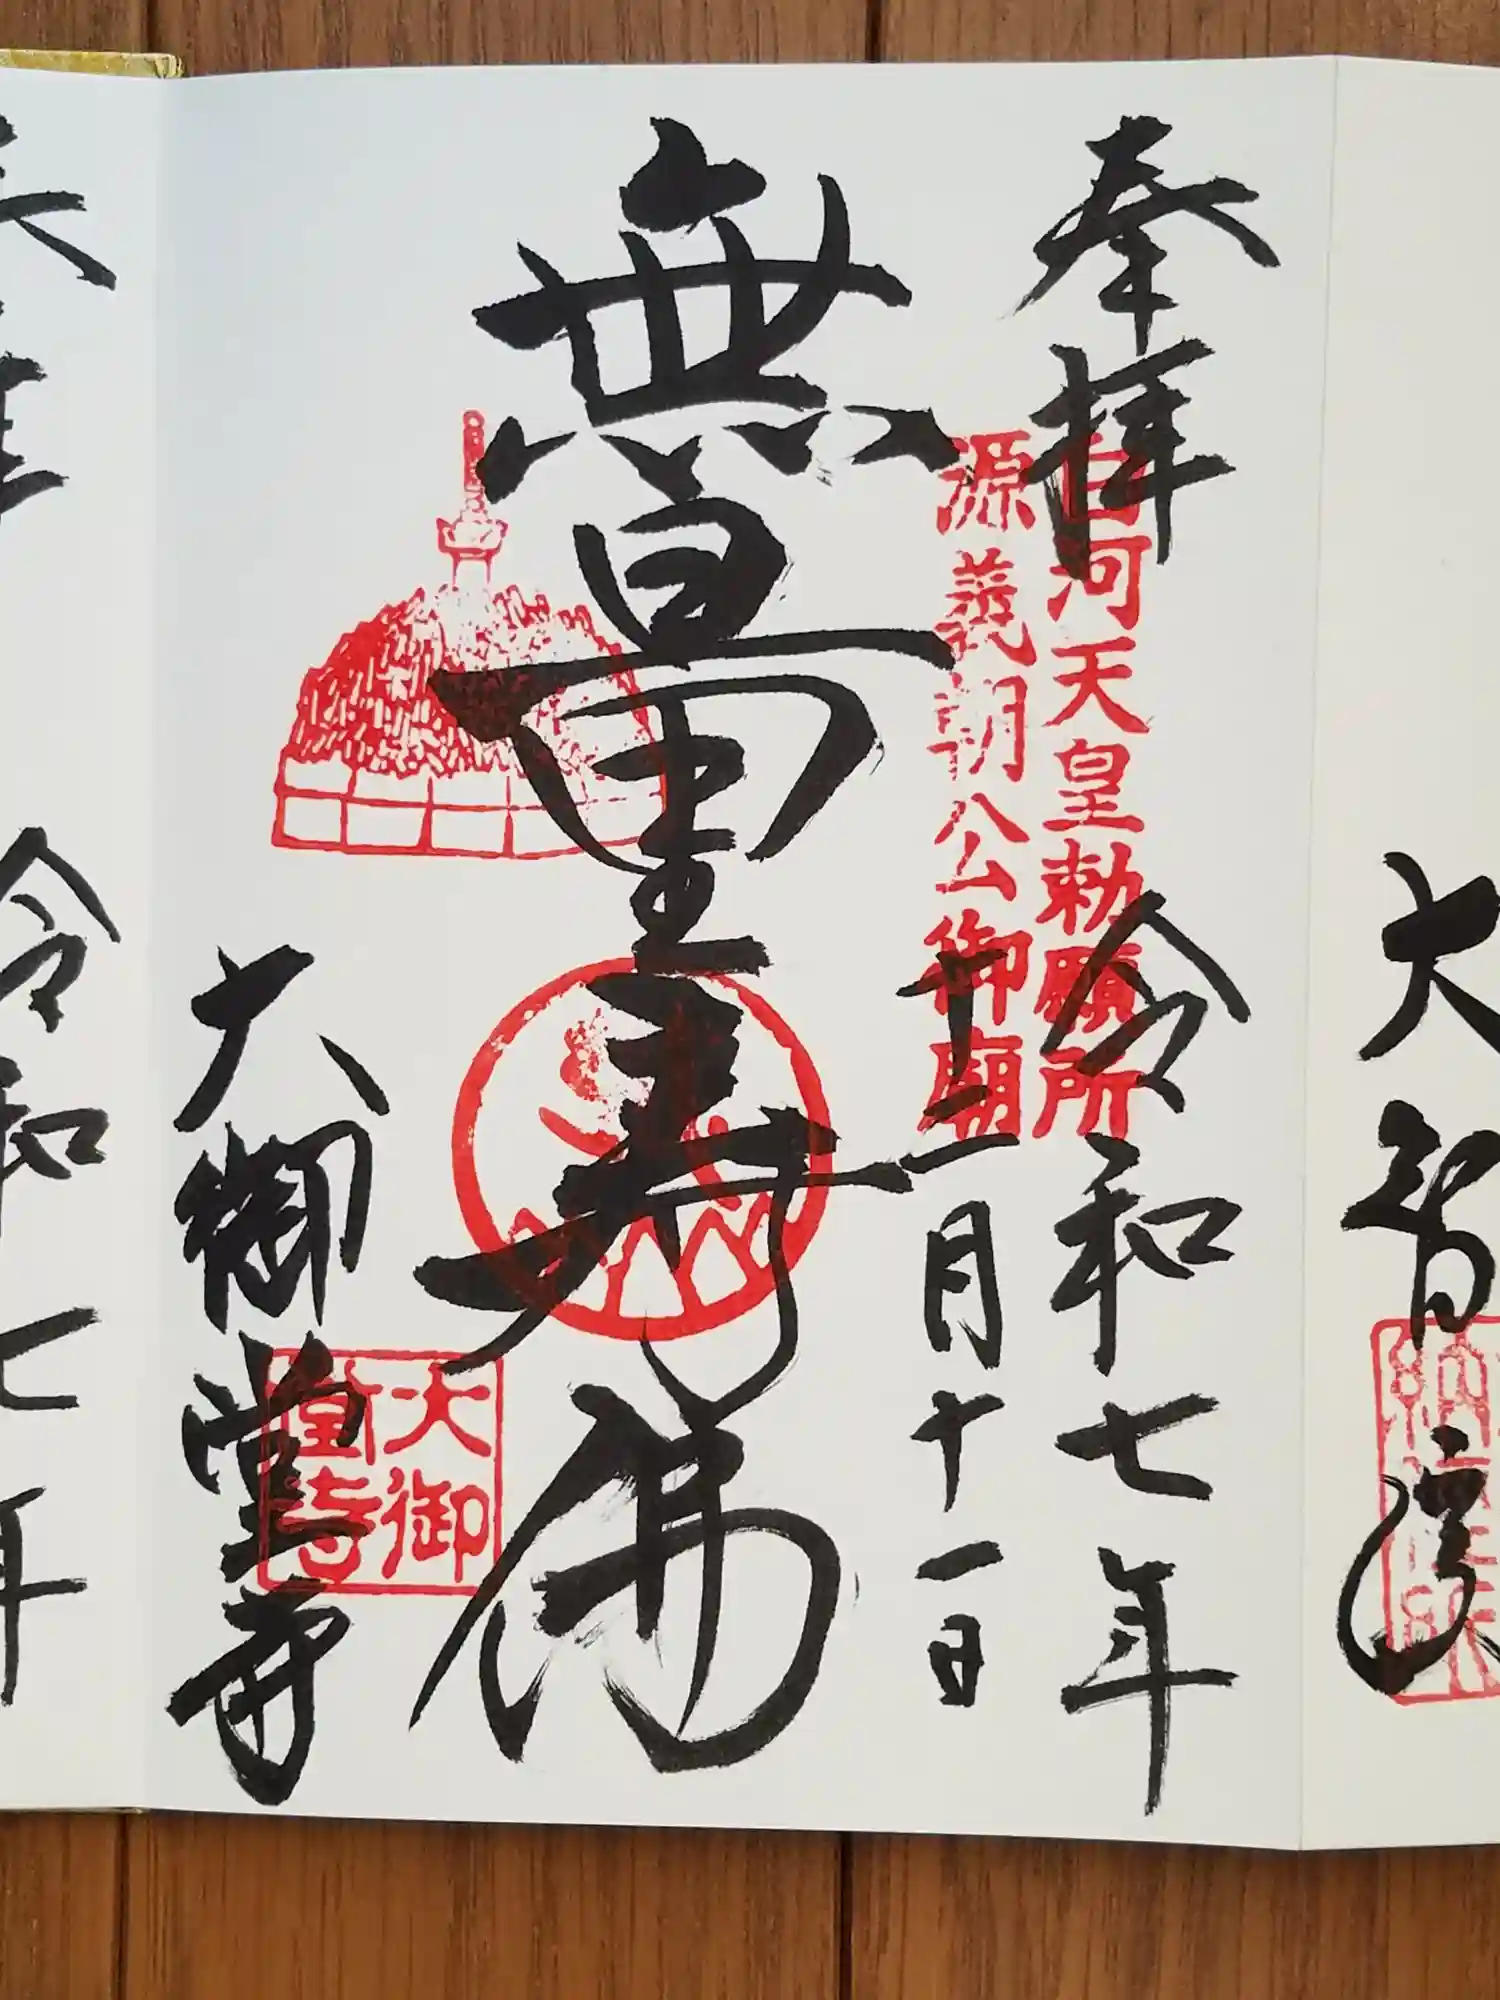 大智
奉拝
令和七年
十二月十一日
白河天皇勅願所
源義朝公御廟
無量寿佛
大御堂寺
大御
堂寺
令和七年